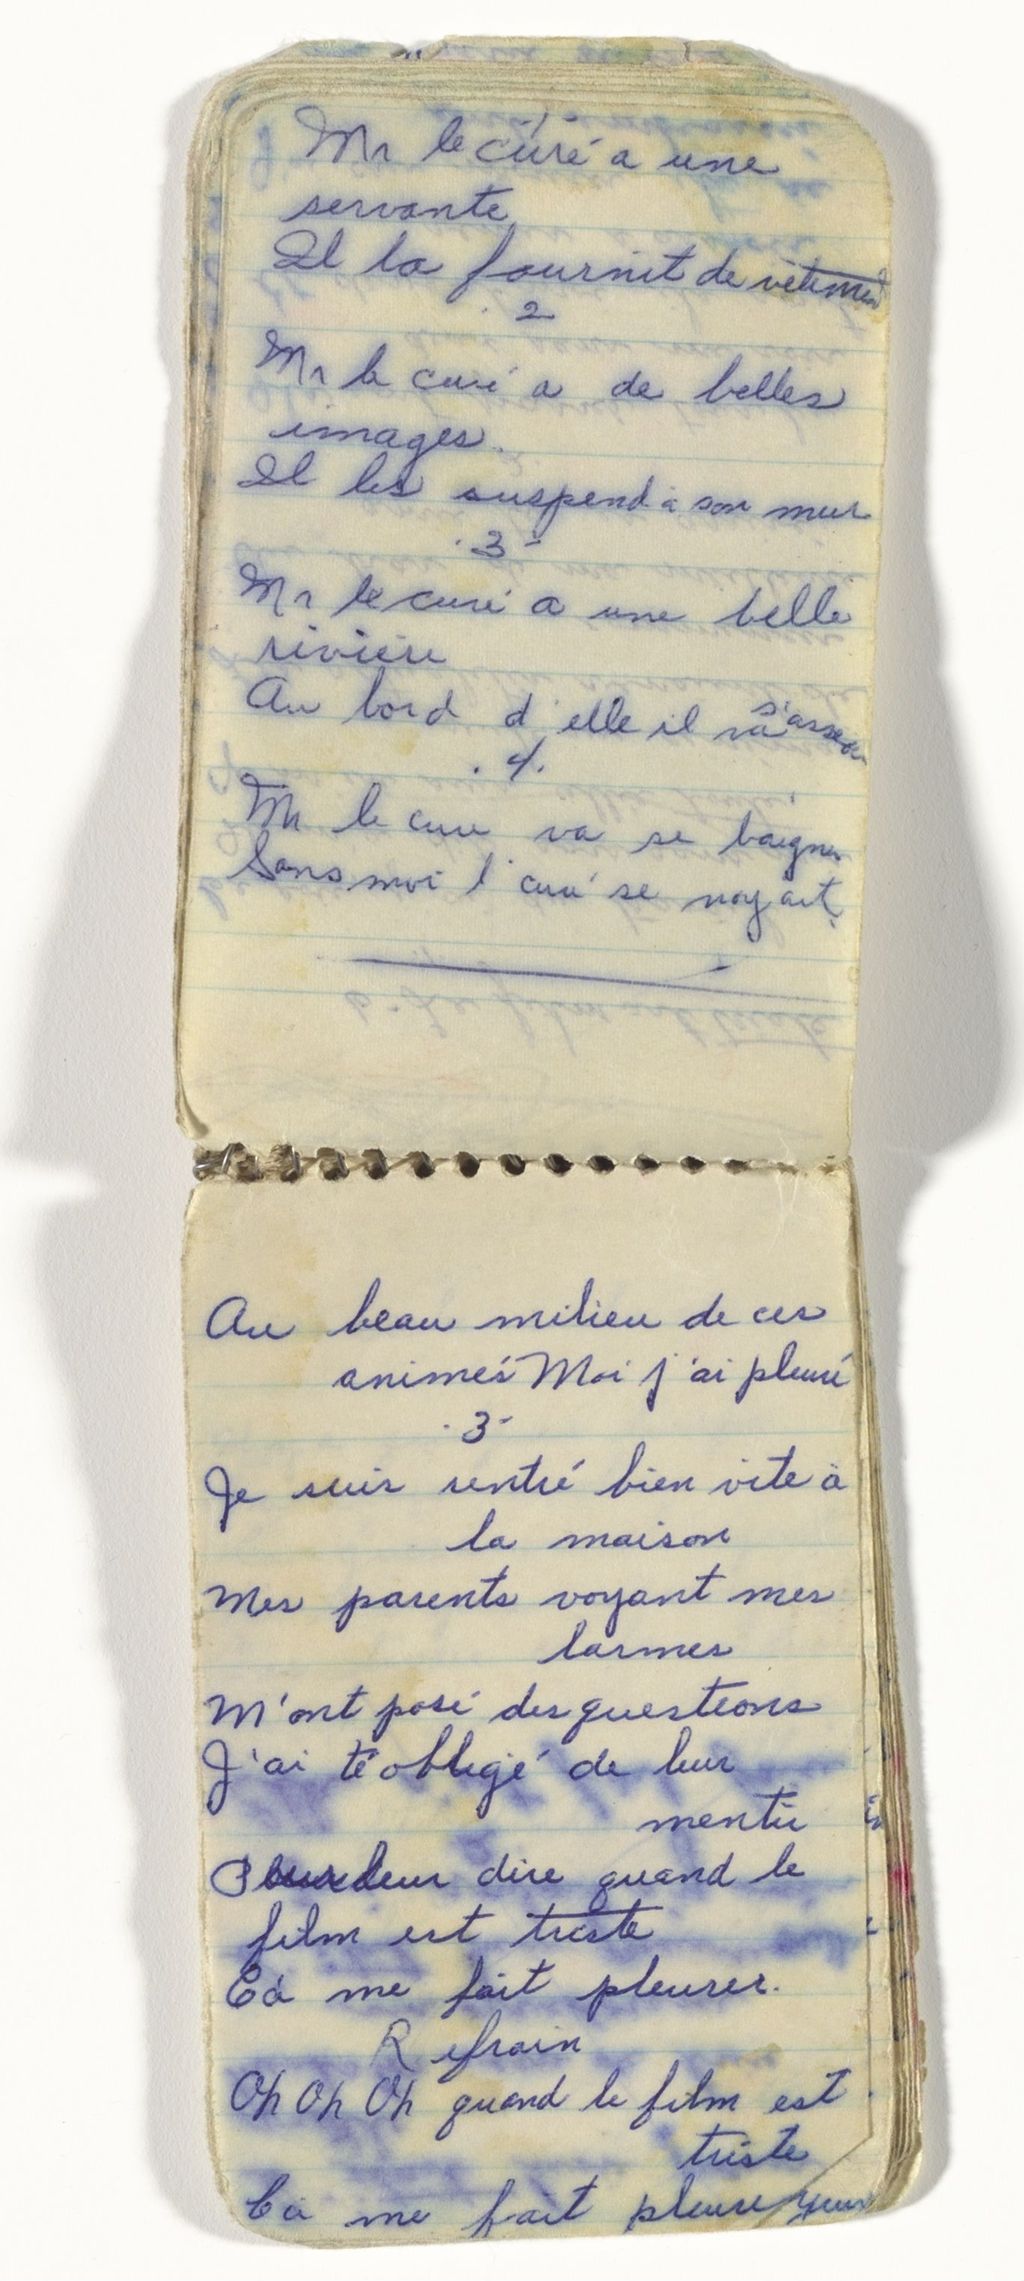 Mr le curé a une
servante
Il la fournit de vêtement
2
Mr le curé a de belles
images.
Il les suspend à son mur
.3-
Mr le curé a une belle
rivière
Au bord d'elle il va s'asseoir
.4.
Mr le curé va se baigner
Sans moi l'curé se noyait.
Au beau milieu de ces
animés Moi j'ai pleuré
-3-
Je suis rentré bien vite à
la maison
Mes parents voyant mes
larmes
M'ont posé des questions
J'ai té obligé de leur
mentir
leur dire quand le
film est triste
Cà me fait pleurer.
Refrain
Oh Oh Oh quand le film est
triste
Cà me fait pleurer